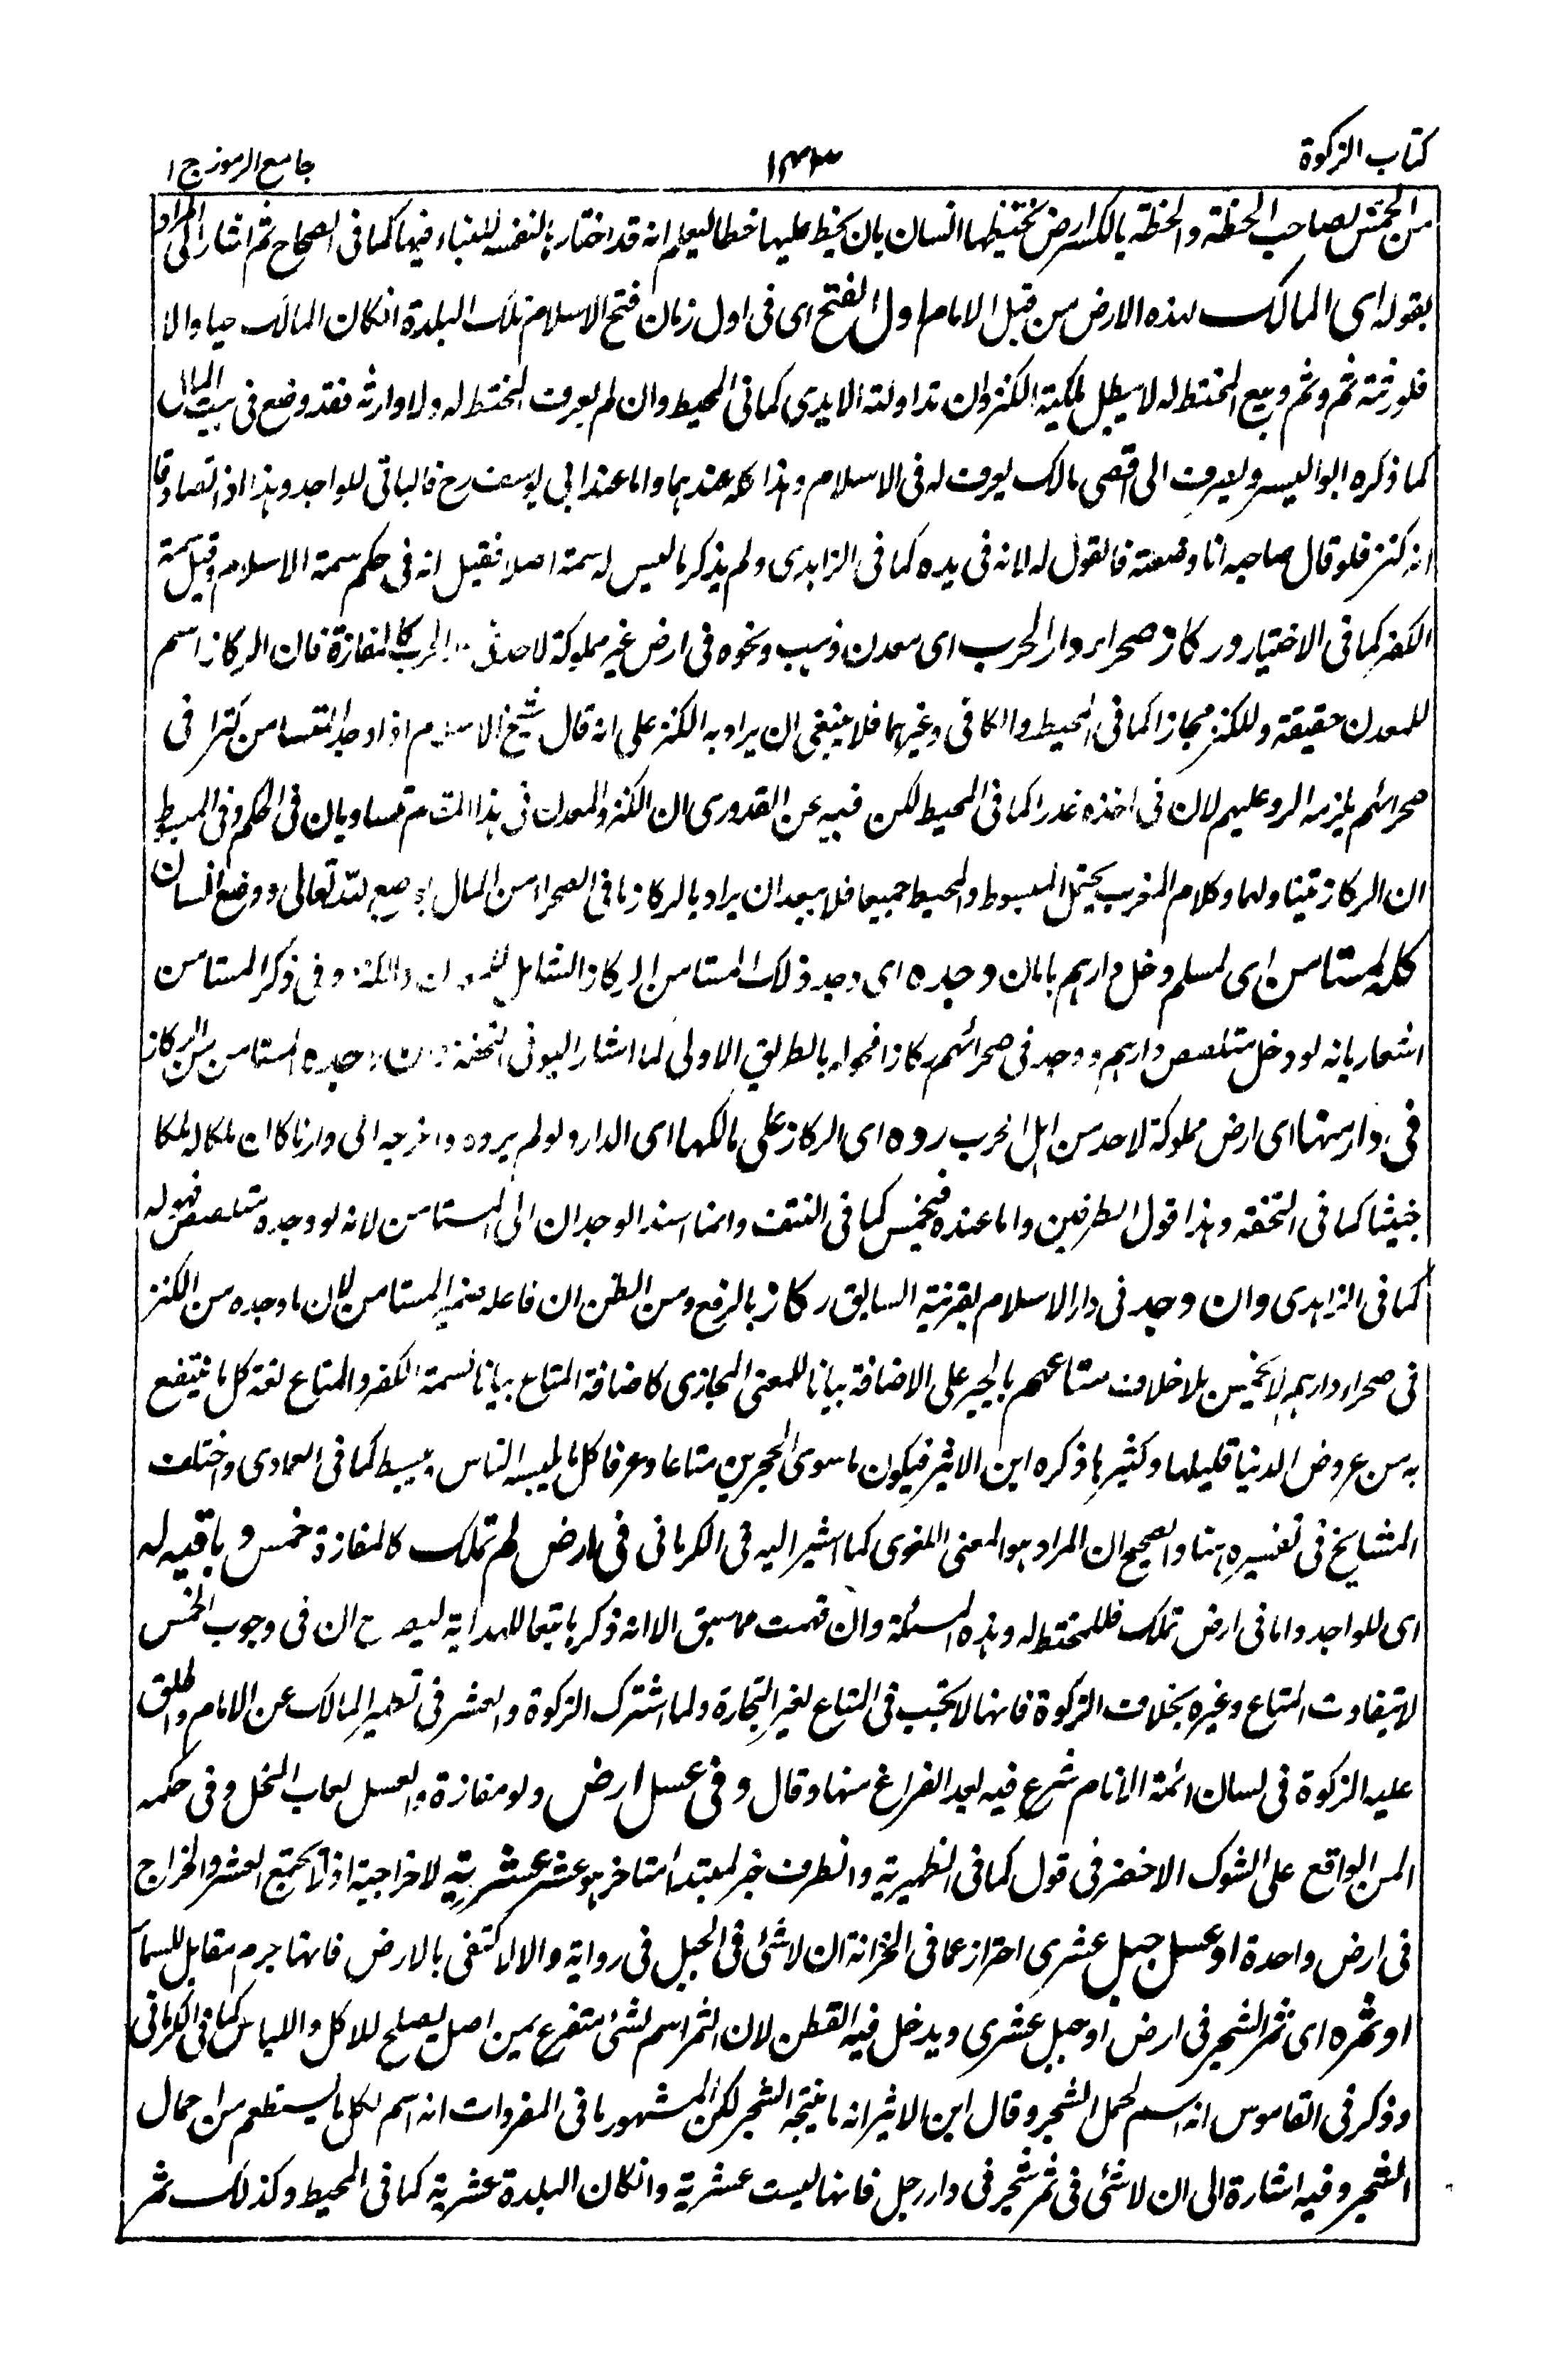 كتاب الزكوة
١٤٣
جامع الرموز ج ١
من الخمس لصاحب الخطة والخطة بالكسر ارض يختطها انسان بان يخط عليها خطا ليعلم انه قد اختارها لنفسه للبناء فيها كما فى الصحاح ثم اشار الى المراد
بقوله اى المالك لهذه الارض من قبل الامام اول الفتح اى فى اول زمان فتح الاسلام تلك البلدة انكان المالك حيا والا
فلورثته ثم وثم وبيع المختط له لا يبطل ملكية الكنز وان تداولته الايدى كما فى المحيط وان لم يعرف المختط له ولا وارثه فقد وضع فى بيت المال
كما ذكره ابو اليسر ويعرف الى اقصى مالك يعرف له فى الاسلام وهذا كله عندهما واما عند ابي يوسف رح فالباقى للواجد وهذا اذا تصادقا
انه كنز فلو قال صاحبه انا وضعته فالقول له لانه فى يده كما فى الزاهدى ولم يذكر ما ليس له سمة اصلا فقيل انه فى حكم سمة الاسلام وقيل سمة
الكفر كما فى الاختيار وركاز صحراء دار الحرب اى معدن ذهب ونحوه فى ارض غير مملوكة لاحد فى دار الحرب كالمفازة فان الركاز اسم
للمعدن حقيقة وللكنز مجازا كما فى المحيط والكافى وغيرهما فلا ينبغى ان يراد به الكنز على انه قال شيخ الاسلام اذا وجد المستامن كنزا فى
صحرائهم يلزمه الرد عليهم لان فى اخذه غدرا كما فى المحيط لكن فيه عن القدورى ان الكنز والمعدن فى هذا المقام متساويان فى الحكم وفى المبسوط
ان الركاز يتناولهما وكلام المغرب يحتمل المبسوط والمحيط جميعا فلا يبعد ان يراد بالركاز ما فى الصحراء من المال بوضع لله تعالى ووضع انسان
كله لمستامن اى لمسلم دخل دارهم بامان وجده اى وجد ذلك المستامن الركاز الشامل للمعدن والكنز وفى ذكر المستامن
اشعار بانه لو دخل متلصص دارهم ووجد فى صحرائهم ركازا فهو له بالطريق الاولى لما اشار اليه فى التحفة وان وجده المستامن من الركاز
فى دار منها اى ارض مملوكة لاحد من اهل الحرب رده اى الركاز على مالكها اى الدار ولو لم يرده واخرجه الى دارنا كان ملكا له ملكا
خبيثا كما فى التحفة وهذا قول الطرفين واما عنده فيخمس كما فى النتف وانما اسند الوجدان الى المستامن لانه لو وجده متلصص فهو له
كما فى الزاهدى وان وجد فى دار الاسلام بقرينة السابق ركاز بالرفع ومن الظن ان فاعله ضمير المستامن لان ما وجده من الكنز
فى صحراء دارهم لا يخمس بلا خلاف متاعهم بالجر على الاضافة بيانا للمعنى المجازى كاضافة المتاع بيانا لسمة الكفر والمتاع لغة كل ما ينتفع
به من عروض الدنيا قليلها وكثيرها ذكره ابن الاثير فيكون ما سوى الحجرين متاعا وعرفا كل ما يلبسه الناس ويبسط كما فى العمادى واختلف
المشايخ فى تفسيره هنا والصحيح ان المراد هو المعنى اللغوى كما اشير اليه فى الكرمانى فى ارض لم تملك كالمفازة خمس وباقيه له
اى للواجد واما فى ارض تملك فللمختط له وهذه المسئلة وان فهمت مما سبق الا انه ذكرها تبعا للهداية ليصرح ان فى وجوب الخمس
لا يتفاوت المتاع وغيره بخلاف الزكوة فانها لا تجب فى المتاع لغير التجارة ولما اشترك الزكوة والعشر فى تطهير المالك عن الاثام واطلق
عليه الزكوة فى لسان ائمة الانام شرع فيه بعد الفراغ منها وقال وفى عسل ارض ولو مفازة والعسل لعاب النحل وفى حكمه
المن الواقع على الشوك الاخضر فى قول كما فى الظهيرية والظرف خبر لمبتدا متاخر هو عشر عشرية لا خراجية اذ لا يجتمع العشر والخراج
فى ارض واحدة او عسل جبل عشرى احتراز عما فى الخزانة ان لا شئ فى الجبل فى رواية والا لاكتفى بالارض فانها جرم مقابل للسماء
او ثمره اى ثمر الشجر فى ارض او جبل عشرى ويدخل فيه القطن لان الثمر اسم لشئ متفرع من اصل يصلح للاكل واللباس كما فى الكرمانى
وذكر فى القاموس انه اسم لحمل الشجر وقال ابن الاثير انه ما ينتجه الشجر لكن المشهور ما فى المفردات انه اسم لكل ما يستطعم من احمال
الشجر وفيه اشارة الى ان لا شئ فى ثمر شجر فى دار رجل فانها ليست عشرية وانكان البلدة عشرية كما فى المحيط وكذلك ثمر